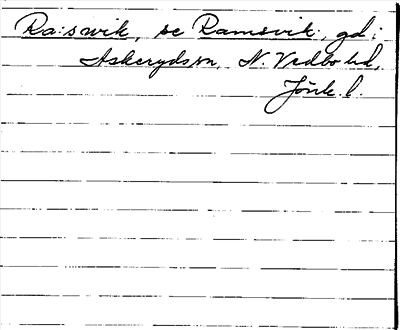 Ra:swik, se Ramsvik, gd i
Askeryds sn, N. Vedbo hd,
Jönk. l.